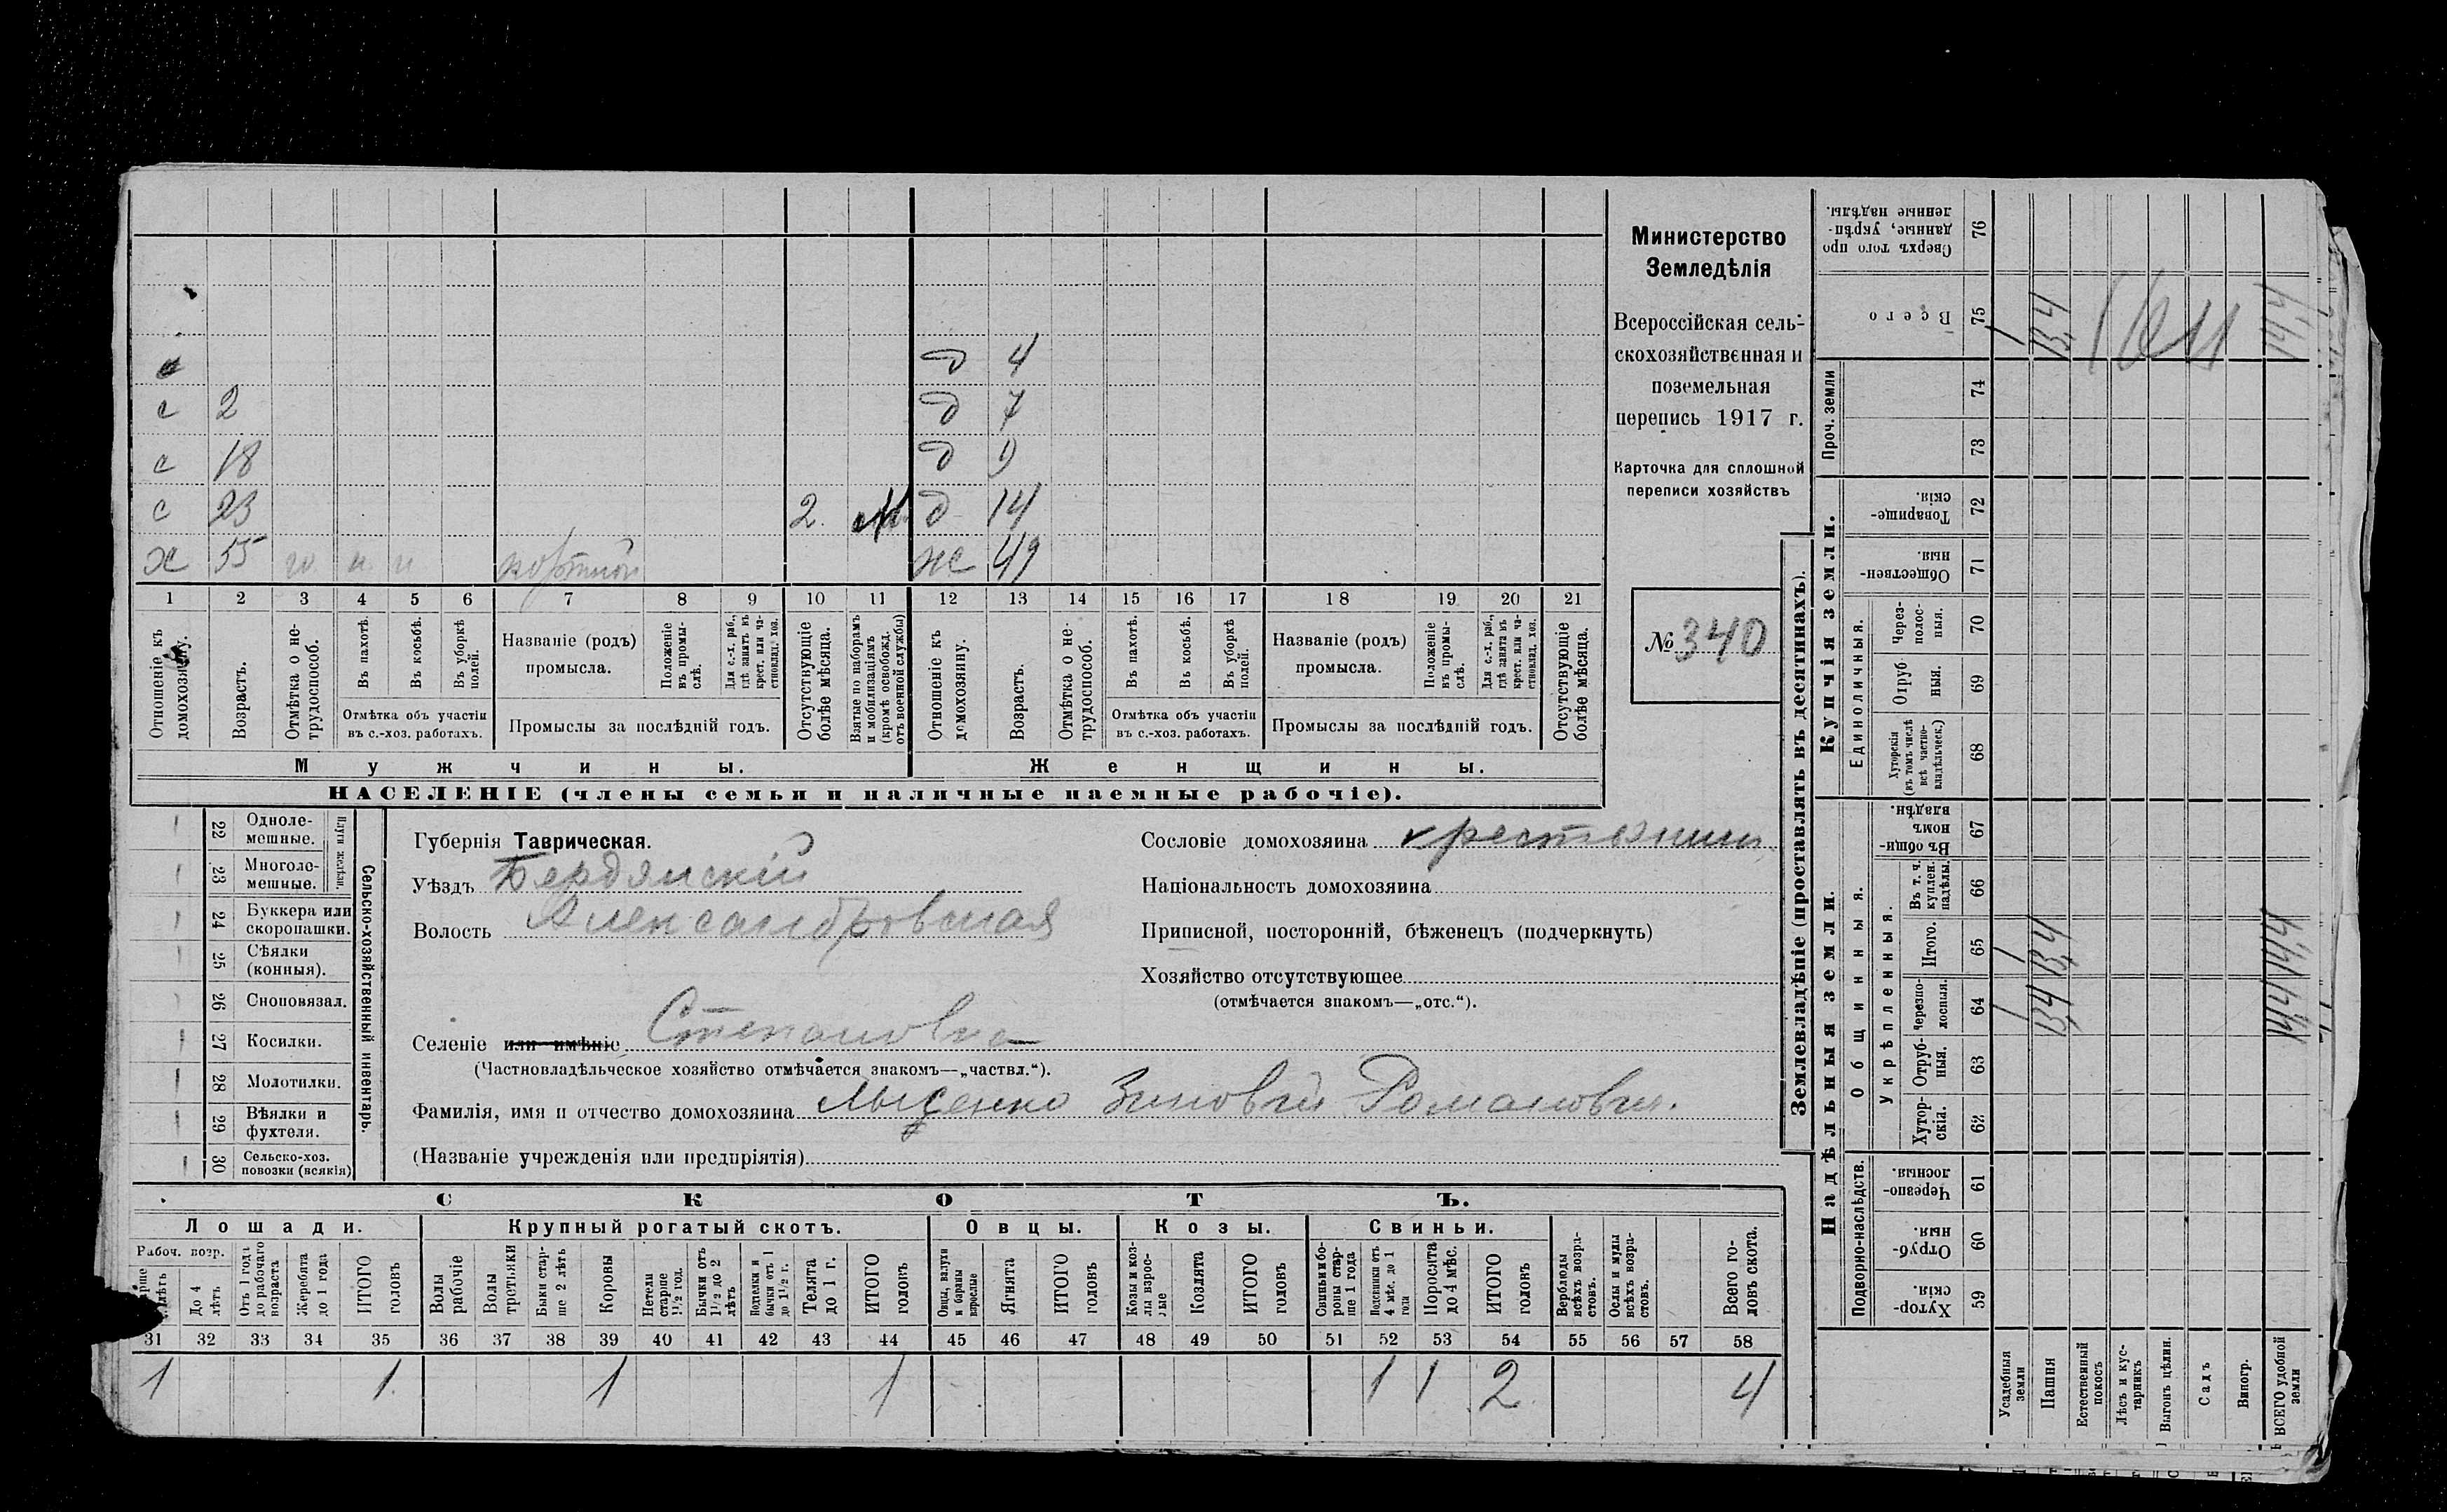 Министерство
Земледѣлія
Всероссійская сель-
скохозяйственная и
поземельная
перепись 1917 г.
Карточка для сплошной
переписи хозяйствъ
№ 340
д 4
с 2 д 7
с 18 д 9
с 23 2. д 14
х 55 н н портной ж 49
1 2 3 4 5 6 7 8 9 10 11 12 13 14 15 16 17 18 19 20 21
Отношеніе къ домохозяину.
Возрастъ.
Отмѣтка о не-трудоспособ.
Въ пахотѣ.
Въ косьбѣ.
Въ уборкѣ полей.
Отмѣтка объ участіи въ с.-хоз. работахъ.
Названіе (родъ) промысла.
Положеніе въ промы-слѣ.
Для с.-х. раб., гдѣ занятъ въ крест. или ча-стновлад. хоз.
Промыслы за послѣдній годъ.
Отсутствующіе болѣе мѣсяца.
Взятые по наборамъ и мобилизаціямъ (кромѣ освобожд. отъ военной службы)
Отношеніе къ домохозяину.
Возрастъ.
Отмѣтка о не-трудоспособ.
Въ пахотѣ.
Въ косьбѣ.
Въ уборкѣ полей.
Отмѣтка объ участіи въ с.-хоз. работахъ.
Названіе (родъ) промысла.
Положеніе въ промы-слѣ.
Для с.-х. раб., гдѣ занята въ крест. или ча-стновлад. хоз.
Промыслы за послѣдній годъ.
Отсутствующіе болѣе мѣсяца.
Мужчины. Женщины.
НАСЕЛЕНІЕ (члены семьи и наличные наемные рабочіе).
22 Одноле-мешные.
23 Многоле-мешные.
Плуги желѣзн.
24 Буккера или скоропашки.
25 Сѣялки (конныя).
26 Сноповязал.
27 Косилки.
28 Молотилки.
29 Вѣялки и фухтеля.
30 Сельско-хоз. повозки (всякія)
Сельско-хозяйственный инвентарь.
Губернія Таврическая.
Уѣздъ Бердянскій
Волость Александровская
Селеніе или имѣніе Степановка
(Частновладѣльческое хозяйство отмѣчается знакомъ—„частвл.“).
Фамилія, имя и отчество домохозяина Лысенко Зиновій Романович.
(Названіе учрежденія или предпріятія)
Сословіе домохозяина крестьянин
Національность домохозяина
Приписной, посторонній, бѣженецъ (подчеркнуть)
Хозяйство отсутствующее
(отмѣчается знакомъ—„отс.“).
СКОТЪ.
Лошади. Крупный рогатый скотъ. Овцы. Козы. Свиньи.
Рабоч. возр.
До 4 лѣтъ
Отъ 1 года до рабочаго возраста
Жеребята до 1 года
ИТОГО головъ
Волы рабочіе
Волы третьяки
Быки стар-ше 2 лѣтъ
Коровы
Нетели старше 1½ год.
Бычки отъ 1½ до 2 лѣтъ
Подтелки и бычки отъ 1 до 1½ г.
Телята до 1 г.
ИТОГО головъ
Овцы, валухи и бараны взрослые
Ягнята
ИТОГО головъ
Козы и коз-лы взрос-лые
Козлята
ИТОГО головъ
Свиньи и бо-ровы стар-ше 1 года
Подсвинки отъ 4 мѣс. до 1 года
Поросята до 4 мѣс.
ИТОГО головъ
Верблюды всѣхъ возра-стовъ.
Ослы и мулы всѣхъ возра-стовъ.
Всего го-ловъ скота.
31 32 33 34 35 36 37 38 39 40 41 42 43 44 45 46 47 48 49 50 51 52 53 54 55 56 57 58
1 1 1 1 1 1 2 4
Землевладѣніе (проставлять въ десятинахъ).
Надѣльныя земли. Купчія земли. Проч. земли
Подворно-наслѣдств.
Общинныя.
Укрѣпленныя.
Единоличныя.
59 Хутор-скія.
60 Отруб-ныя.
61 Черезпо-лосныя.
62 Хутор-скія.
63 Отруб-ныя.
64 Черезпо-лосныя.
65 Итого.
66 Въ т. ч. куплен. надѣлы.
67 Въ общин-номъ владѣн.
68 Хуторскія (въ томъ числѣ всѣ частно-владѣльческ.)
69 Отруб-ныя.
70 Через-полос-ныя.
71 Обществен-ныя.
72 Товарище-скія.
73
74
75 Всего
76 Сверхъ того про-данные, укрѣп-ленные надѣлы.
Усадебныя земли
Пашня
Естественный покосъ
Лѣсъ и кус-тарникъ
Выгонъ цѣлин.
Садъ
Виногр.
ВСЕГО удобной земли
1 1 1
13,4 13,4 13,4
14,4 14,4 14,4